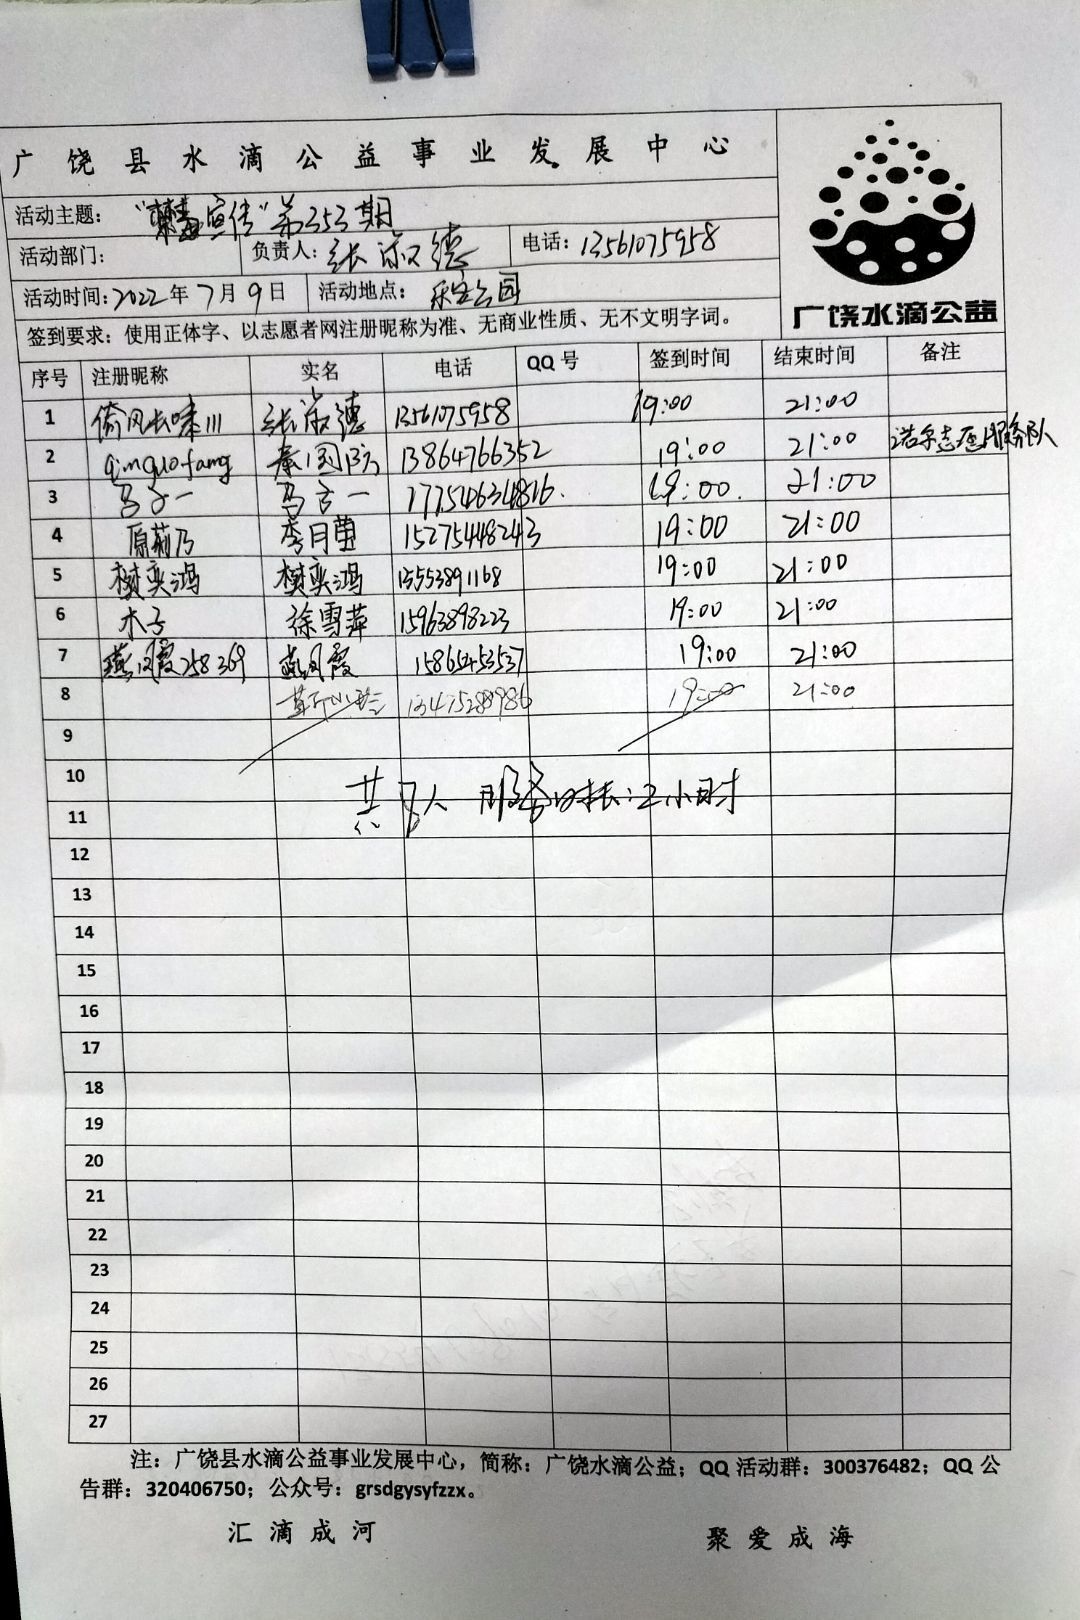 广饶县水滴公益事业发展中心
活动主题：“禁毒宣传”第353期
活动部门： 负责人：张淑德 电话：13561075958
活动时间：2022年7月9日 活动地点：乐安公园
广饶水滴公益
签到要求：使用正体字、以志愿者网注册昵称为准、无商业性质、无不文明字词。
序号 注册昵称 实名 电话 QQ号 签到时间 结束时间 备注
1 张淑德 13561075958 19:00 21:00
2 qinguofang 秦国防 13864766352 19:00 21:00 志愿服务队
3 马子一 马子一 17754634816 19:00 21:00
4 原莉乃 李月茵 15275448243 19:00 21:00
5 樊奕鸿 樊奕鸿 13553891168 19:00 21:00
6 木子 徐雪萍 15963898223 19:00 21:00
7 燕凤霞258369 燕凤霞 15865453537 19:00 21:00
8 13475289986 19:00 21:00
9
10
共 人 服务时长：2小时
11
12
13
14
15
16
17
18
19
20
21
22
23
24
25
26
27
注：广饶县水滴公益事业发展中心，简称：广饶水滴公益；QQ活动群：300376482；QQ公
告群：320406750；公众号：grsdgysyfzzx。
汇滴成河 聚爱成海